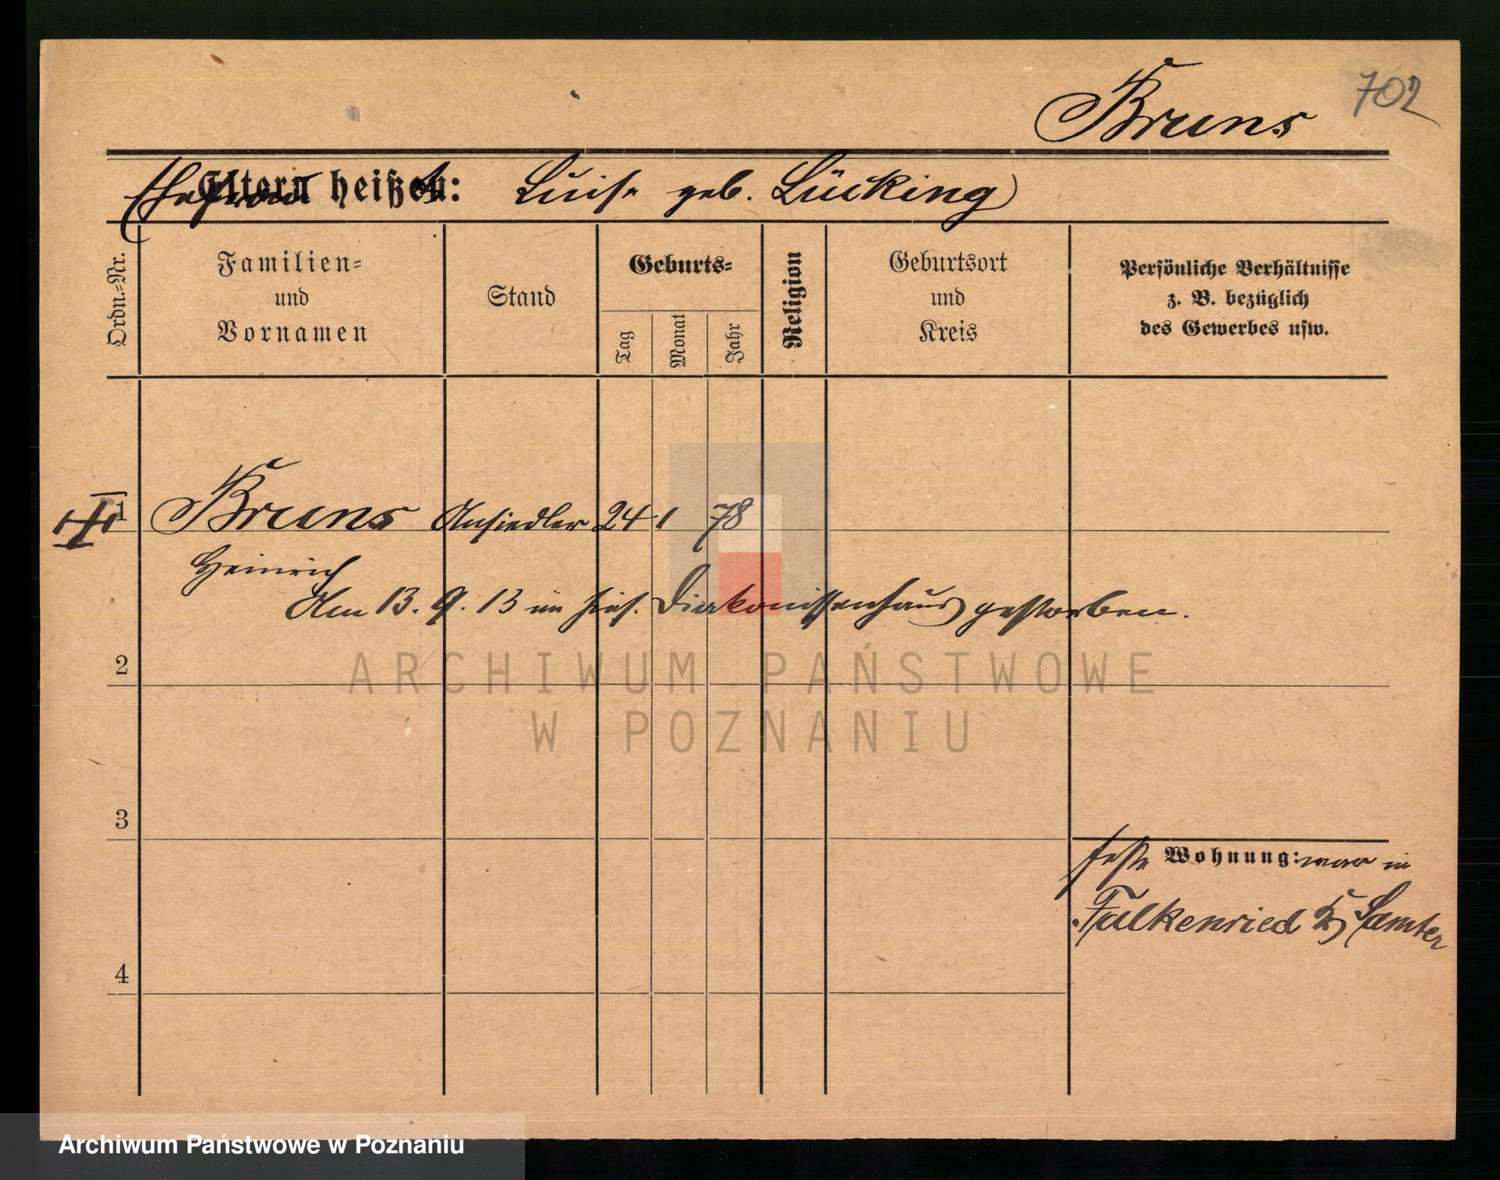 Bruns 702
(Ehefrau heißt: Luise geb. Lücking)
Ordn.-Nr.
Familien-
und
Vornamen
Stand
Geburts-
Tag
Monat
Jahr
Religion
Geburtsort
und
Kreis
Persönliche Verhältnisse
z. B. bezüglich
des Gewerbes usw.
1 Bruns Ansiedler 24 1 78
Heinrich
Am 13. 9. 13 im hies. Diakonissenhaus gestorben.
2
3
feste Wohnung: war in
Falkenried Samter
4
ARCHIWUM PAŃSTWOWE
W POZNANIU
Archiwum Państwowe w Poznaniu